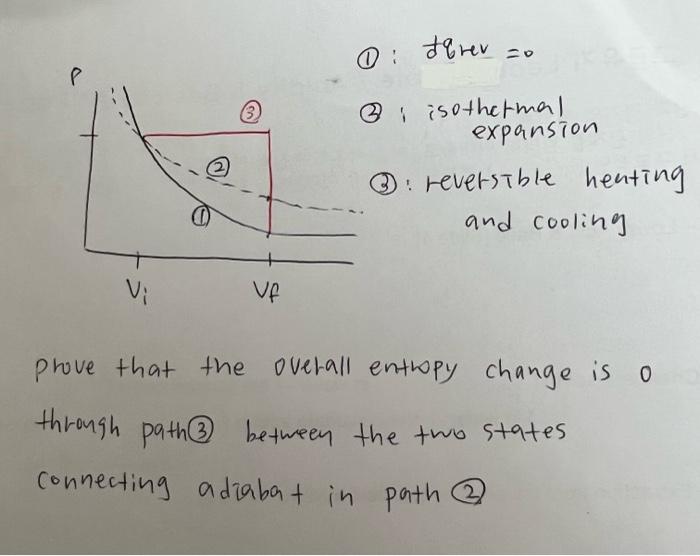 P
①: đqrev =0
②: isothermal
expansion
③: reversible heating
and cooling
③
②
①
Vi
Vf
prove that the overall entropy change is 0
through path③ between the two states
connecting adiabat in path ②